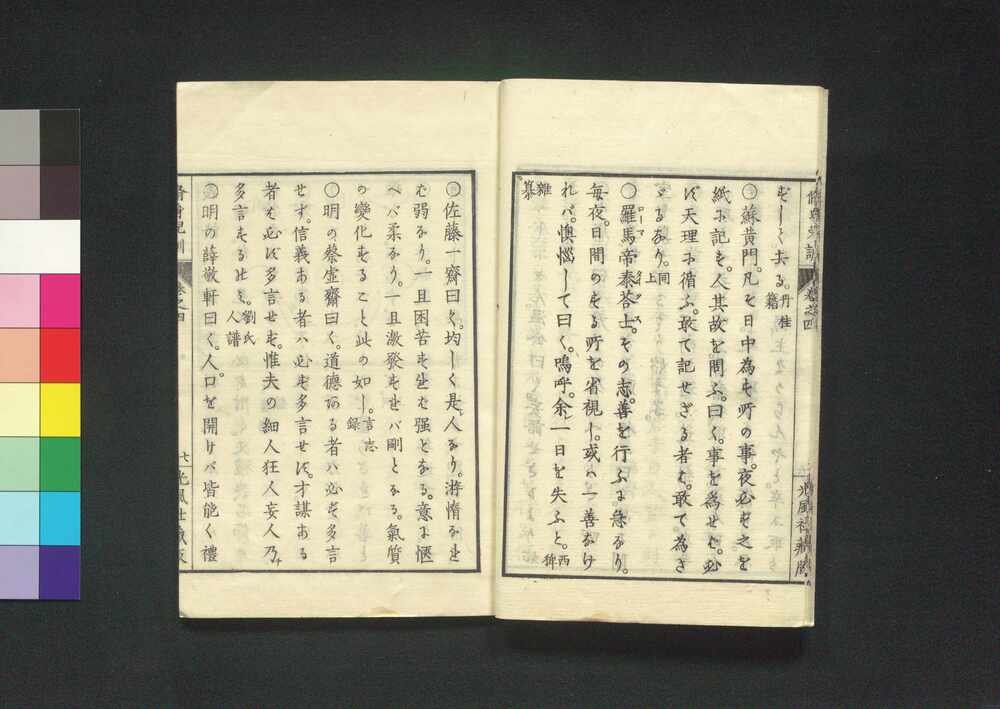 巻之四
ずして去る。丹桂籍
〇蘇黄門。凡そ日中為す所の事。夜必ず之を
紙に記す。人其故を問ふ。曰く。事を為せば。必
ず天理に循ふ。敢て記せざる者は。敢て為さ
ゞるなり。同上
〇羅馬帝泰荅土。その志。善を行ふに急なり。
ローマ
毎夜。日間のする所を省視し。或ハ一善なけ
れバ。懊惱して曰く。嗚呼。余一日を失ふと。西稗
雜纂
〇佐藤一齋曰く。均しく是人なり。游惰なれ
ば弱なり。一旦困苦すれば强となる。意に愜
へバ柔なり。一旦激發すれバ剛となる。氣質
の變化すること此の如し。言志録
〇明の蔡虚齋曰く。道德ある者ハ必ず多言
せず。信義ある者ハ必ず多言せず。才謀ある
者も必ず多言せず。惟夫の細人狂人妄人乃
多言するのみと。劉氏人譜
〇明の薛敬軒曰く。人口を開けバ皆能く禮
巻之四
七